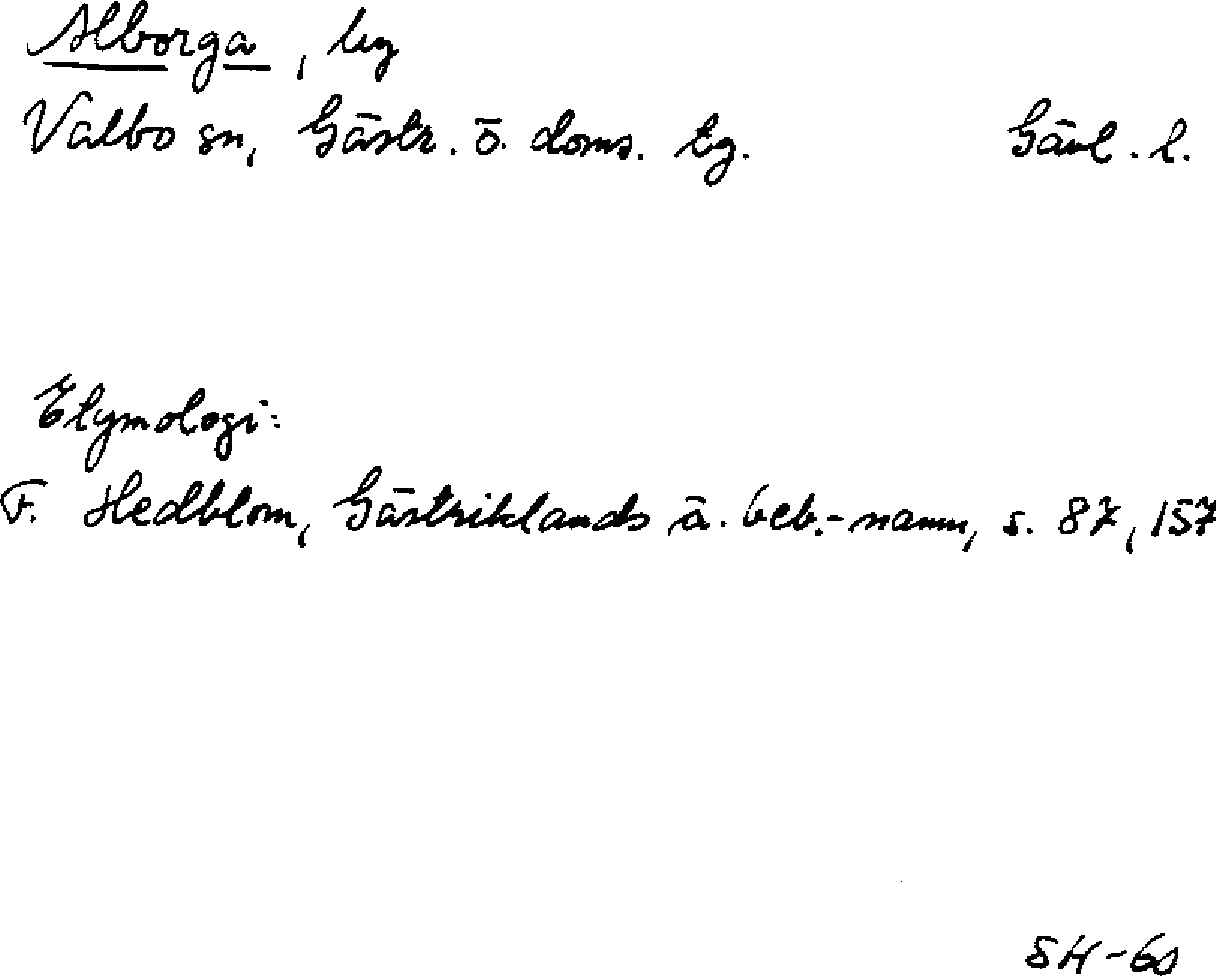 Alborga, by
Valbo sn, Gästr. ö. doms. tg. Gävl. l.
Etymologi:
F. Hedblom, Gästriklands ä. beb.-namn, s. 87, 157